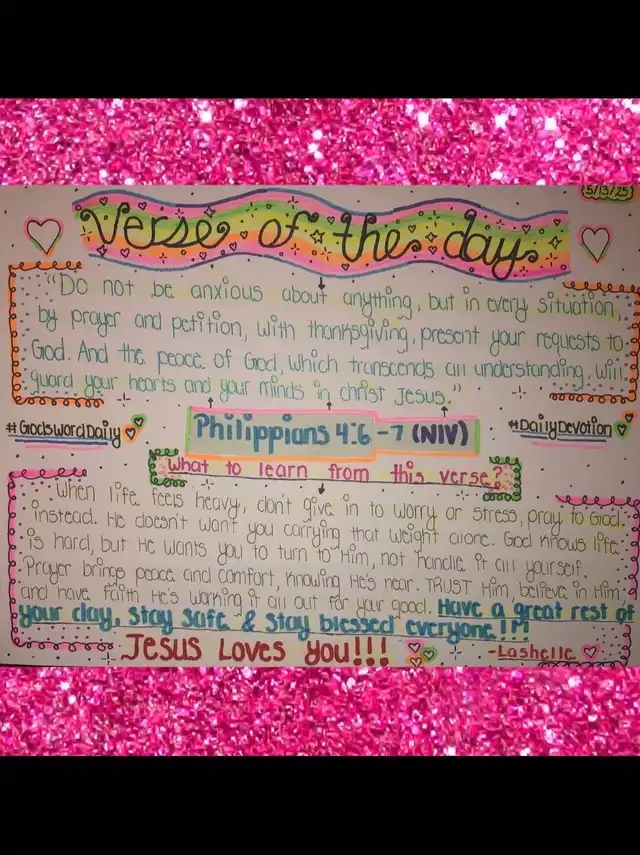 5/13/25
Verse of the day
"Do not be anxious about anything, but in every situation,
by prayer and petition, with thanksgiving, present your requests to
God. And the peace of God, which transcends all understanding, will
guard your hearts and your minds in christ Jesus."
#GodsWordDaily
Philippians 4:6-7 (NIV)
#DailyDevotion
What to learn from this verse?
When life feels heavy, don't give in to worry or stress, pray to God
instead. He doesn't want you carrying that weight alone. God knows life
is hard, but He wants you to turn to Him, not handle it all yourself.
Prayer brings peace and comfort, knowing He's near. TRUST Him, believe in Him,
and have faith He's working it all out for your good. Have a great rest of
your day, stay safe & stay blessed everyone!!!
Jesus Loves you!!!
-Lashelle